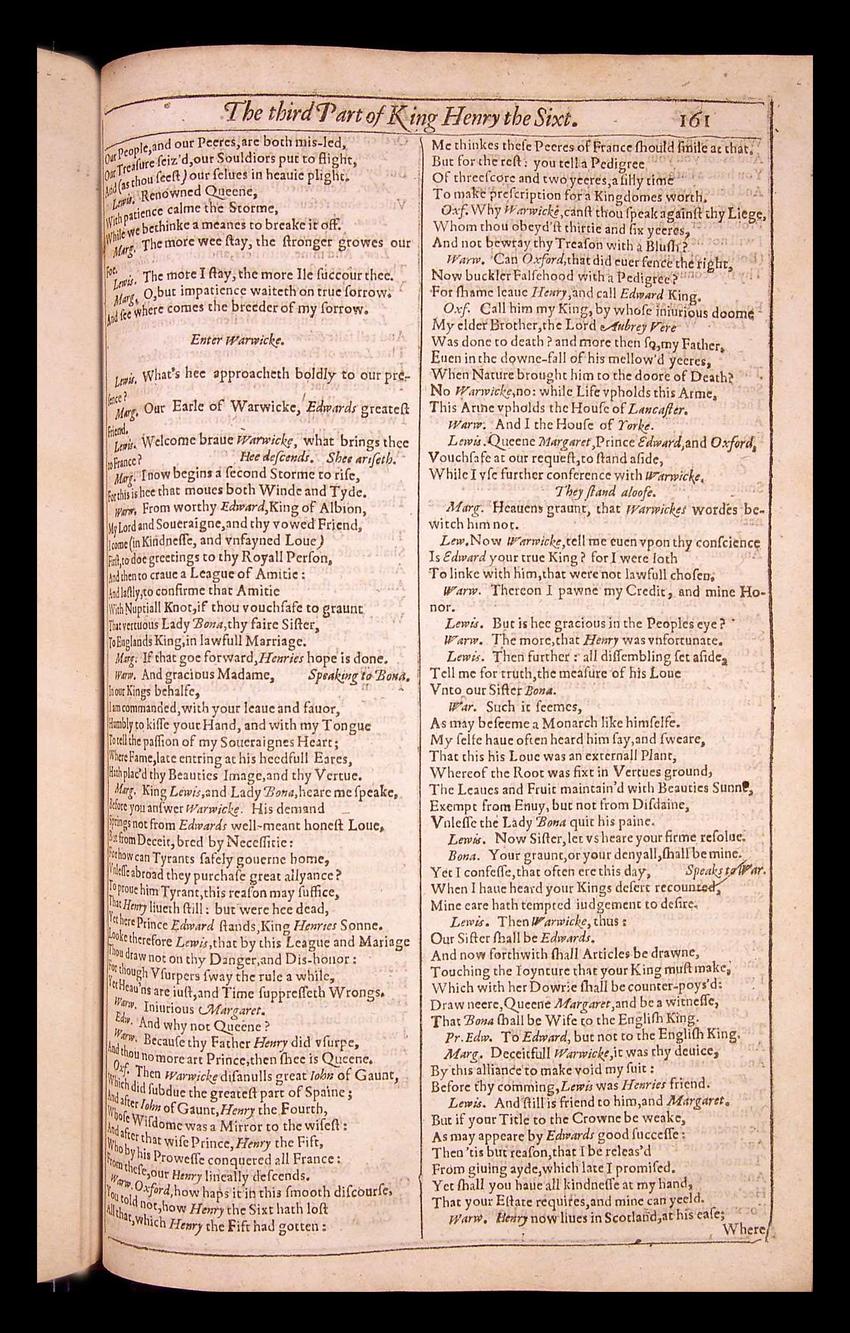 The third Part of King Henry the Sixt. 161
Our People, and our Peeres, are both mis-led,
Our Treasure seiz'd, our Souldiors put to flight,
And (as thou seest) our selues in heauie plight.
Lewis. Renowned Queene,
With patience calme the Storme,
While we bethinke a meanes to breake it off.
Marg. The more wee stay, the stronger growes our
Foe.
Lewis. The more I stay, the more Ile succour thee.
Marg. O, but impatience waiteth on true sorrow.
And see where comes the breeder of my sorrow.
Enter Warwicke.
Lewis. What's hee approacheth boldly to our pre-
sence?
Marg. Our Earle of Warwicke, Edwards greatest
Friend.
Lewis. Welcome braue Warwicke, what brings thee
to France? Hee descends. Shee ariseth.
Marg. I now begins a second Storme to rise,
For this is hee that moues both Winde and Tyde.
Warw. From worthy Edward, King of Albion,
My Lord and Soueraigne, and thy vowed Friend,
I come (in Kindnesse, and vnfayned Loue)
First, to doe greetings to thy Royall Person,
And then to craue a League of Amitie:
And lastly, to confirme that Amitie
With Nuptiall Knot, if thou vouchsafe to graunt
That vertuous Lady Bona, thy faire Sister,
To Englands King, in lawfull Marriage.
Marg. If that goe forward, Henries hope is done.
Warw. And gracious Madame, Speaking to Bona.
In our Kings behalfe,
I am commanded, with your leaue and fauor,
Humbly to kisse your Hand, and with my Tongue
To tell the passion of my Soueraignes Heart;
Where Fame, late entring at his heedfull Eares,
Hath plac'd thy Beauties Image, and thy Vertue.
Marg. King Lewis, and Lady Bona, heare me speake,
Before you answer Warwicke. His demand
Springs not from Edwards well-meant honest Loue,
But from Deceit, bred by Necessitie:
For how can Tyrants safely gouerne home,
Vnlesse abroad they purchase great allyance?
To proue him Tyrant, this reason may suffice,
That Henry liueth still: but were hee dead,
Yet here Prince Edward stands, King Henries Sonne.
Looke therefore Lewis, that by this League and Mariage
Thou draw not on thy Danger, and Dis-honor:
For though Vsurpers sway the rule a while,
Yet Heau'ns are iust, and Time suppresseth Wrongs.
Warw. Iniurious Margaret.
Edw. And why not Queene?
Warw. Because thy Father Henry did vsurpe,
And thou no more art Prince, then shee is Queene.
Oxf. Then Warwicke disanulls great Iohn of Gaunt,
Which did subdue the greatest part of Spaine;
And after Iohn of Gaunt, Henry the Fourth,
Whose Wisdome was a Mirror to the wisest:
And after that wise Prince, Henry the Fift,
Who by his Prowesse conquered all France:
From these, our Henry lineally descends.
Warw. Oxford, how haps it in this smooth discourse,
You told not, how Henry the Sixt hath lost
All that, which Henry the Fift had gotten:
Me thinkes these Peeres of France should smile at that.
But for the rest: you tell a Pedigree
Of threescore and two yeeres, a silly time
To make prescription for a Kingdomes worth.
Oxf. Why Warwicke, canst thou speak against thy Liege,
Whom thou obeyd'st thirtie and six yeeres,
And not bewray thy Treason with a Blush?
Warw. Can Oxford, that did euer fence the right,
Now buckler Falsehood with a Pedigree?
For shame leaue Henry, and call Edward King.
Oxf. Call him my King, by whose iniurious doome
My elder Brother, the Lord Aubrey Vere
Was done to death? and more then so, my Father,
Euen in the downe-fall of his mellow'd yeeres,
When Nature brought him to the doore of Death?
No Warwicke, no: while Life vpholds this Arme,
This Arme vpholds the House of Lancaster.
Warw. And I the House of Yorke.
Lewis. Queene Margaret, Prince Edward, and Oxford,
Vouchsafe at our request, to stand aside,
While I vse further conference with Warwicke.
They stand aloofe.
Marg. Heauens graunt, that Warwickes wordes be-
witch him not.
Lew. Now Warwicke, tell me euen vpon thy conscience
Is Edward your true King? for I were loth
To linke with him, that were not lawfull chosen.
Warw. Thereon I pawne my Credit, and mine Ho-
nor.
Lewis. But is hee gracious in the Peoples eye?
Warw. The more, that Henry was vnfortunate.
Lewis. Then further: all dissembling set aside,
Tell me for truth, the measure of his Loue
Vnto our Sister Bona.
War. Such it seemes,
As may beseeme a Monarch like himselfe.
My selfe haue often heard him say, and sweare,
That this his Loue was an externall Plant,
Whereof the Root was fixt in Vertues ground,
The Leaues and Fruit maintain'd with Beauties Sunne,
Exempt from Enuy, but not from Disdaine,
Vnlesse the Lady Bona quit his paine.
Lewis. Now Sister, let vs heare your firme resolue.
Bona. Your graunt, or your denyall, shall be mine.
Yet I confesse, that often ere this day, Speaks to War.
When I haue heard your Kings desert recounted,
Mine eare hath tempted iudgement to desire.
Lewis. Then Warwicke, thus:
Our Sister shall be Edwards.
And now forthwith shall Articles be drawne,
Touching the Ioynture that your King must make,
Which with her Dowrie shall be counter-poys'd:
Draw neere, Queene Margaret, and be a witnesse,
That Bona shall be Wife to the English King.
Pr. Edw. To Edward, but not to the English King.
Marg. Deceitfull Warwicke, it was thy deuice,
By this alliance to make void my suit:
Before thy comming, Lewis was Henries friend.
Lewis. And still is friend to him, and Margaret.
But if your Title to the Crowne be weake,
As may appeare by Edwards good successe:
Then 'tis but reason, that I be releas'd
From giuing ayde, which late I promised.
Yet shall you haue all kindnesse at my hand,
That your Estate requires, and mine can yeeld.
Warw. Henry now liues in Scotland, at his ease;
Where